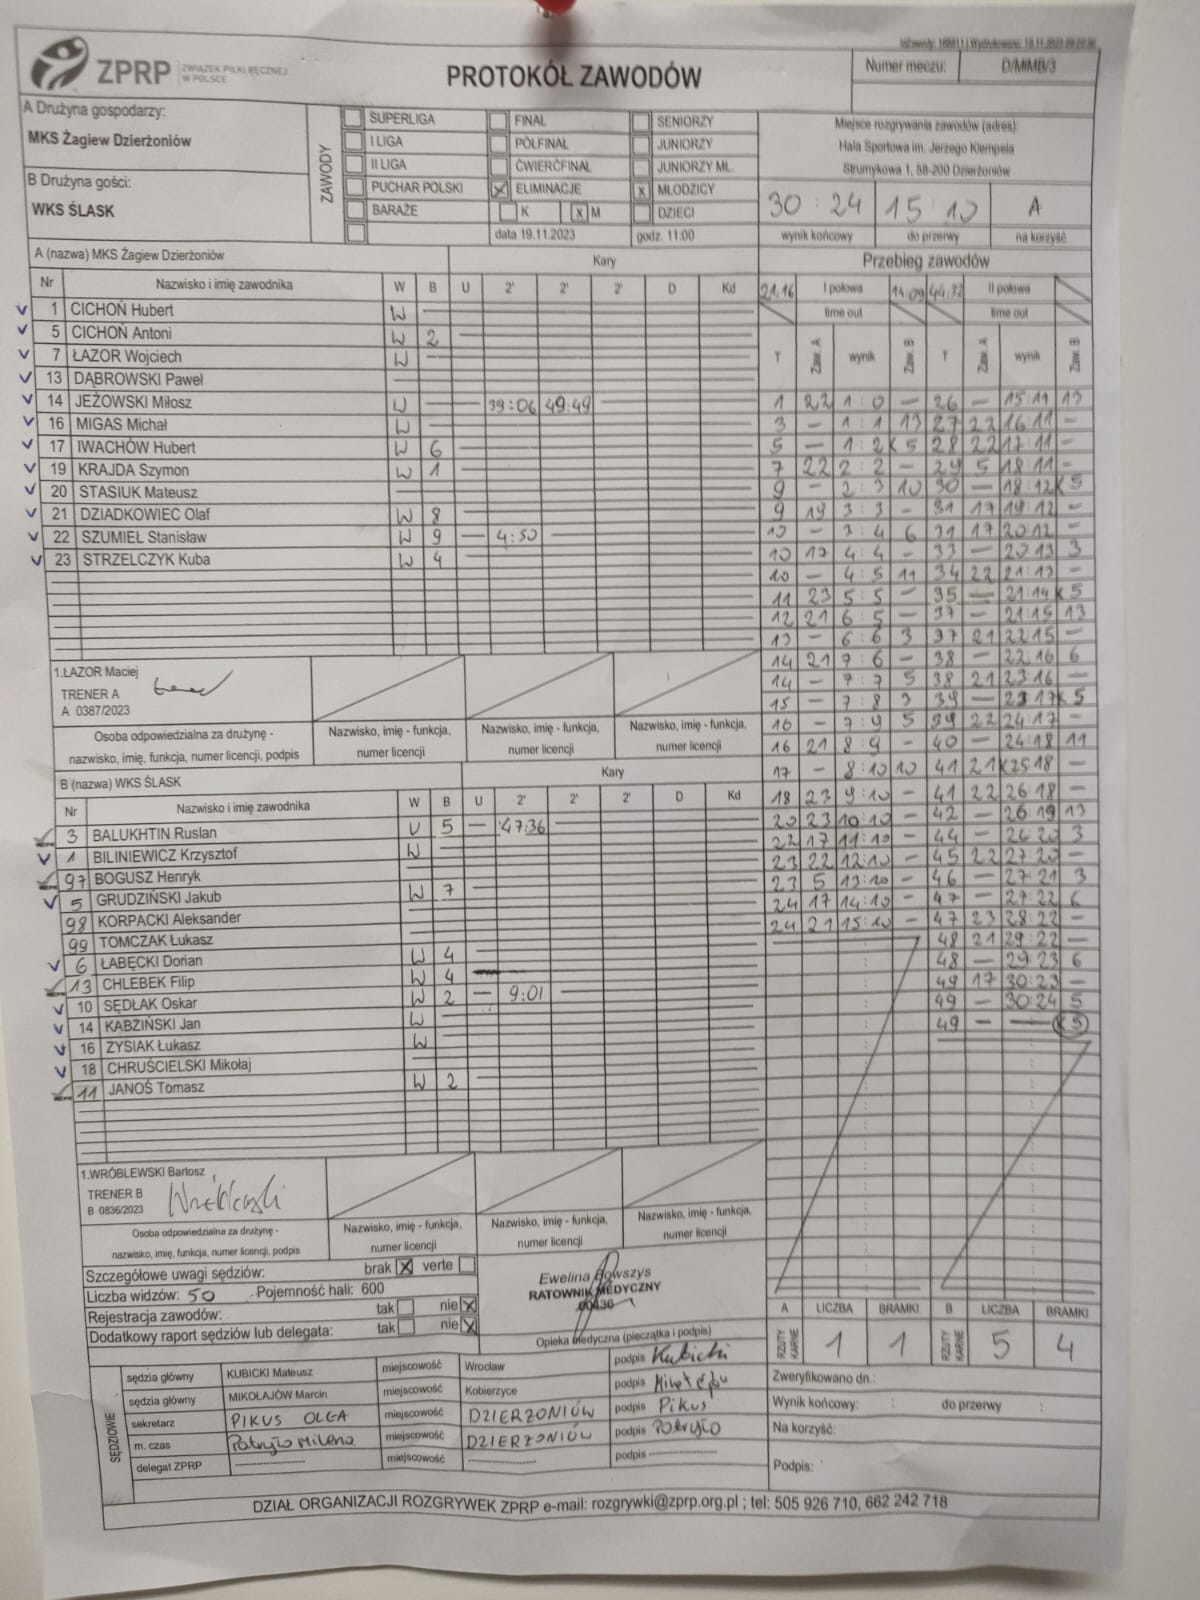 ZPRP ZWIĄZEK PIŁKI RĘCZNEJ W POLSCE
PROTOKÓŁ ZAWODÓW
Numer meczu: D/M/MB/3
A Drużyna gospodarzy:
MKS Żagiew Dzierżoniów
B Drużyna gości:
WKS ŚLASK
ZAWODY
SUPERLIGA FINAŁ SENIORZY
I LIGA PÓŁFINAŁ JUNIORZY
II LIGA ĆWIERĆFINAŁ JUNIORZY MŁ.
PUCHAR POLSKI X ELIMINACJE X MŁODZICY
BARAŻE K X M DZIECI
data 19.11.2023 godz. 11:00
Miejsce rozgrywania zawodów (adres):
Hala Sportowa im. Jerzego Klempela
Strumykowa 1, 58-200 Dzierżoniów
30 : 24 15 : 10 A
wynik końcowy do przerwy na korzyść
A (nazwa) MKS Żagiew Dzierżoniów Kary
Nr Nazwisko i imię zawodnika W B U 2' 2' 2' D Kd
1 CICHOŃ Hubert W
5 CICHOŃ Antoni W 2
7 ŁAZOR Wojciech W
13 DĄBROWSKI Paweł
14 JEŻOWSKI Miłosz W 39:06 49:49
16 MIGAS Michał W
17 IWACHÓW Hubert W 6
19 KRAJDA Szymon W 1
20 STASIUK Mateusz
21 DZIADKOWIEC Olaf W 8
22 SZUMIEŁ Stanisław W 9 4:50
23 STRZELCZYK Kuba W 4
1.ŁAZOR Maciej
TRENER A
A 0387/2023
Osoba odpowiedzialna za drużynę -
nazwisko, imię, funkcja, numer licencji, podpis
Nazwisko, imię - funkcja, numer licencji
Nazwisko, imię - funkcja, numer licencji
Nazwisko, imię - funkcja, numer licencji
B (nazwa) WKS ŚLASK Kary
Nr Nazwisko i imię zawodnika W B U 2' 2' 2' D Kd
3 BALUKHTIN Ruslan W 5 47:36
1 BILINIEWICZ Krzysztof W
97 BOGUSZ Henryk
5 GRUDZIŃSKI Jakub W 7
98 KORPACKI Aleksander
99 TOMCZAK Łukasz
6 ŁABĘCKI Dorian W 4
13 CHLEBEK Filip W 4
10 SĘDŁAK Oskar W 2 9:01
14 KABZIŃSKI Jan W
16 ZYSIAK Łukasz W
18 CHRUŚCIELSKI Mikołaj
11 JANOŚ Tomasz W 2
1.WRÓBLEWSKI Bartosz
TRENER B
B 0836/2023
Wróblewski
Osoba odpowiedzialna za drużynę -
nazwisko, imię, funkcja, numer licencji, podpis
Nazwisko, imię - funkcja, numer licencji
Nazwisko, imię - funkcja, numer licencji
Nazwisko, imię - funkcja, numer licencji
Szczegółowe uwagi sędziów: brak X verte
Liczba widzów: 50 Pojemność hali: 600
Rejestracja zawodów: tak nie X
Dodatkowy raport sędziów lub delegata: tak nie X
Ewelina Bowszys
RATOWNIK MEDYCZNY
00436
Opieka medyczna (pieczątka i podpis)
SĘDZIOWIE
sędzia główny KUBICKI Mateusz miejscowość Wrocław podpis Kubicki
sędzia główny MIKOŁAJÓW Marcin miejscowość Kobierzyce podpis
sekretarz PIKUS OLGA miejscowość DZIERŻONIÓW podpis Pikus
m. czas Patryło Milena miejscowość DZIERŻONIÓW podpis Patryło
delegat ZPRP miejscowość podpis
Przebieg zawodów
21:16 I połowa 14:09 44:37 II połowa
time out time out
T Zaw. A wynik Zaw. B T Zaw. A wynik Zaw. B
1 22 1:0 – 26 – 15:11 13
3 – 1:1 13 27 22 16:11 –
5 – 1:2 K5 28 22 17:11 –
7 22 2:2 – 29 5 18:11 –
9 – 2:3 10 30 – 18:12 K5
9 19 3:3 – 31 17 19:12 –
10 – 3:4 6 31 17 20:12 –
10 17 4:4 – 33 – 20:13 3
10 – 4:5 11 34 22 21:13 –
11 23 5:5 – 35 – 21:14 K5
12 21 6:5 – 37 – 21:15 13
13 – 6:6 3 37 21 22:15 –
14 21 7:6 – 38 – 22:16 6
14 – 7:7 5 38 21 23:16 –
15 – 7:8 3 39 – 23:17 K5
16 – 7:9 5 39 22 24:17 –
16 21 8:9 – 40 – 24:18 11
17 – 8:10 10 41 21K 25:18 –
18 23 9:10 – 41 22 26:18 –
20 23 10:10 – 42 – 26:19 13
22 17 11:10 – 44 – 26:20 3
23 22 12:10 – 45 22 27:20 –
23 5 13:10 – 46 – 27:21 3
24 17 14:10 – 47 – 27:22 6
24 21 15:10 – 47 23 28:22 –
48 21 29:22 –
48 – 29:23 6
49 17 30:23 –
49 – 30:24 5
49 – – K5
A LICZBA BRAMKI B LICZBA BRAMKI
RZUTY KARNE 1 1 RZUTY KARNE 5 4
Zweryfikowano dn.:
Wynik końcowy: : do przerwy :
Na korzyść:
Podpis:
DZIAŁ ORGANIZACJI ROZGRYWEK ZPRP e-mail: rozgrywki@zprp.org.pl ; tel: 505 926 710, 662 242 718